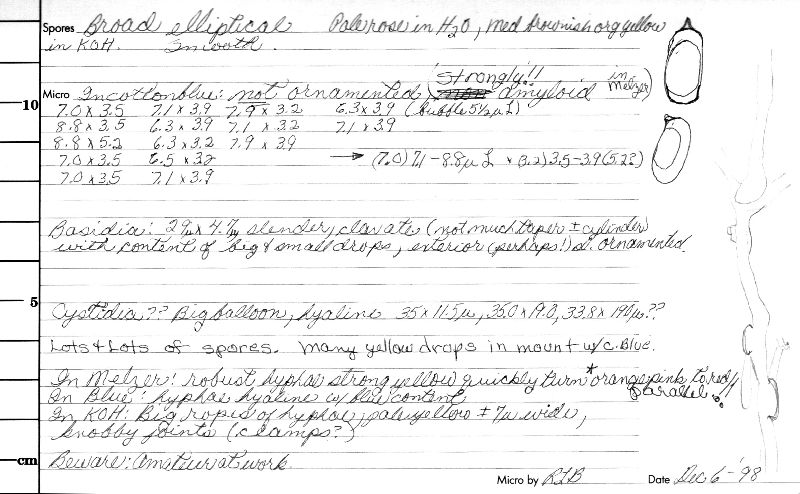 Spores Broad elliptical Pale rose in H2O, med brownish org yellow
in KOH. Smooth.
Micro In cottonblue: not ornamented (strongly!! amyloid in Melzer)
10
7.0 x 3.5 7.1 x 3.9 7.9 x 3.2 6.3 x 3.9 (bubble 5½µ L)
8.8 x 3.5 6.3 x 3.9 7.1 x 3.2 7.1 x 3.9
8.8 x 5.2 6.3 x 3.2 7.9 x 3.9
7.0 x 3.5 6.5 x 3.2 → (7.0) 7.1 - 8.8µ L x (3.2) 3.5 - 3.9 (5.2?)
7.0 x 3.5 7.1 x 3.9
Basidia: 29µ x 4.7µ slender, clavate (not much taper ± cylinder)
with content of big & small drops, exterior (perhaps!) sl. ornamented.
5
Cystidia?? Big balloon, hyaline 35 x 11.5µ, 35.0 x 19.0, 33.8 x 19.0µ??
Lots & Lots of spores. Many yellow drops in mount w/c. Blue.
In Melzer: robust hyphae strong yellow quickly turn *orange pink to red!!
In Blue: hyphae hyaline w blue content parallel.
In KOH: Big ropes of hyphae, pale yellow ± 7µ wide,
knobby joints (clamps?)
cm
Beware: Amateur at work.
Micro by RLB Date Dec 6 - '98